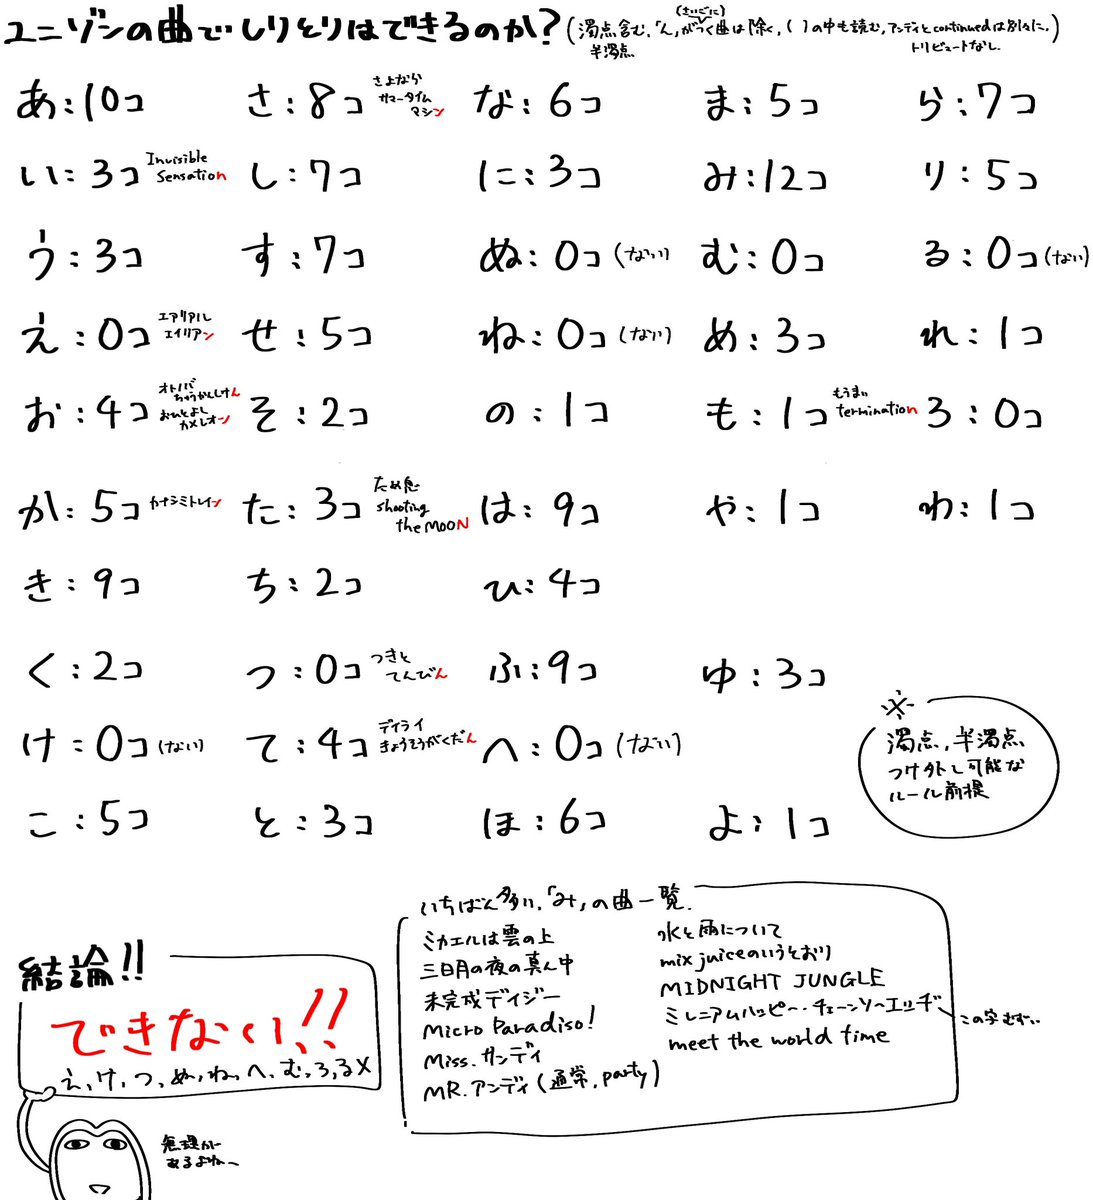 ユニゾンの曲でしりとりはできるのか?(濁点含む,「ん」がつく曲は除く,( )の中も読む,アンディとcontinuedは別々に,)
(さいごに)
半濁点
トリビュートなし
あ:10コ
さ:8コ
さよなら
サマータイム
マシン
な:6コ
ま:5コ
ら:7コ
い:3コ
Invisible
Sensation
し:7コ
に:3コ
み:12コ
り:5コ
う:3コ
す:7コ
ぬ:0コ(ない)
む:0コ
る:0コ(ない)
え:0コ
エアリアル
エイリアン
せ:5コ
ね:0コ(ない)
め:3コ
れ:1コ
お:4コ
オトノバ
ちゅうかんしけん
おひとよし
カメレオン
そ:2コ
の:1コ
も:1コ
もうまい
termination
ろ:0コ
か:5コ
カナシミトレイン
た:3コ
ため息
shooting
the MOON
は:9コ
や:1コ
わ:1コ
き:9コ
ち:2コ
ひ:4コ
く:2コ
つ:0コ
つきと
てんびん
ふ:9コ
ゆ:3コ
け:0コ(ない)
て:4コ
デイライ
きょうそうがくだん
へ:0コ(ない)
こ:5コ
と:3コ
ほ:6コ
よ:1コ
※
濁点,半濁点
つけ外し可能な
ルール前提
結論!!
できない!!
え,け,つ,ぬ,ね,へ,む,ろ,る×
無理が
あるよねー
いちばん多い,「み」の曲一覧.
ミカエルは雲の上
三日月の夜の真ん中
未完成デイジー
Micro Paradiso!
Miss.サンディ
MR.アンディ(通常,party)
水と雨について
mix juiceのいうとおり
MIDNIGHT JUNGLE
ミレニアムハッピー・チェーンソーエッヂ
この字むずい
meet the world time